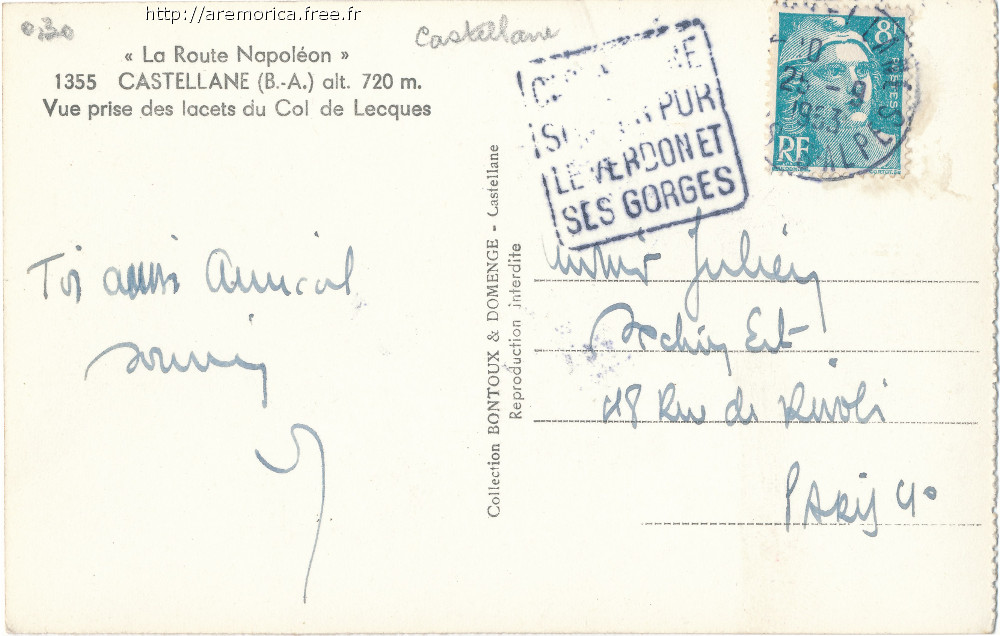 http://aremorica.free.fr
0,30
Castellane
« La Route Napoléon »
1355 CASTELLANE (B.-A.) alt. 720 m.
Vue prise des lacets du Col de Lecques
SON PUR
LE VERDON ET
SES GORGES
8F
POSTES
RF
25 - 9
1953
ALPES
Collection BONTOUX & DOMENGE - Castellane
Reproduction interdite
Toi aussi Amical
souvenir
Julien
48 Rue de Rivoli
PARIS 4°